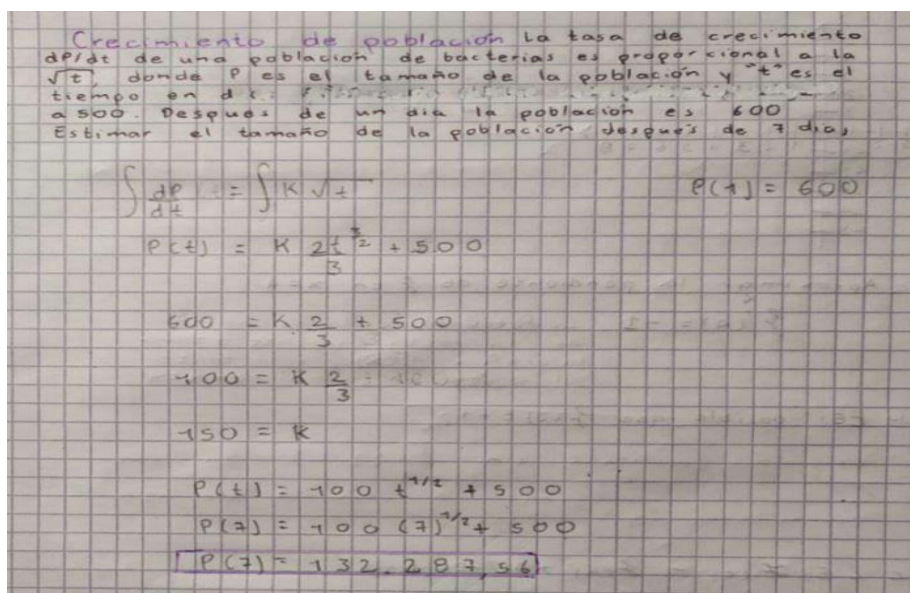 Crecimiento de población La tasa de crecimiento
dP/dt de una población de bacterias es proporcional a la
√t, donde P es el tamaño de la población y "t" es el
tiempo en
a 500. Despues de un dia la población es 600
Estimar el tamaño de la población después de 7 dias
∫ dP/dt = ∫ K √t P(1) = 600
P(t) = K 2t^(3/2)/3 + 500
600 = K 2/3 + 500
100 = K 2/3
150 = K
P(t) = 100 t^(1/2) + 500
P(7) = 100 (7)^(1/2) + 500
P(7) = 132.287,56